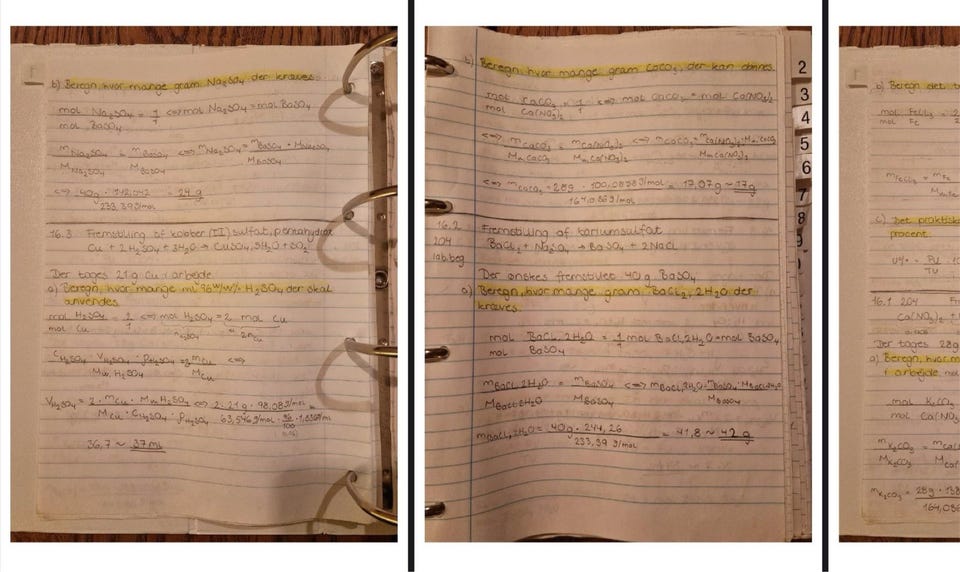 b) Beregn, hvor mange gram Na₂SO₄ der kræves
mol Na₂SO₄ = 1 <=> mol Na₂SO₄ = mol BaSO₄
mol BaSO₄ 1
mNa₂SO₄ = mBaSO₄ <=> mNa₂SO₄ = mBaSO₄ · MNa₂SO₄
MNa₂SO₄ MBaSO₄ MBaSO₄
<=> 40g · 142,042 = 24 g
233,39 g/mol
16.3 Fremstilling af kobber (II) sulfat, pentahydrat
Cu + 2H₂SO₄ + 3H₂O → CuSO₄, 5H₂O + SO₂
Der tages 21 g Cu i arbejde
a) Beregn, hvor mange ml 96 w/w% H₂SO₄ der skal
anvendes
mol H₂SO₄ = 2 <=> mol H₂SO₄ = 2 mol Cu
mol Cu 1 nH₂SO₄ 2nCu
CH₂SO₄ · VH₂SO₄ · ρH₂SO₄ = 2 mCu <=>
Mw, H₂SO₄ MCu
VH₂SO₄ = 2 · mCu · MwH₂SO₄ <=> 2 · 21g · 98,08 g/mol =
MCu · CH₂SO₄ · ρH₂SO₄ 63,546 g/mol · 96/100
36,7 ~ 37 ml
b) Beregn, hvor mange gram CaCO₃ der kan dannes
mol CaCO₃ = 1 <=> mol CaCO₃ = mol Ca(NO₃)₂
mol Ca(NO₃)₂ 1
<=> mCaCO₃ = mCa(NO₃)₂ <=> mCaCO₃ = mCa(NO₃)₂ · MwCaCO₃
MwCaCO₃ Mw,Ca(NO₃)₂ MwCa(NO₃)₂
<=> mCaCO₃ = 28g · 100,0898 g/mol = 17,07g ~ 17g
164,086 g/mol
16.2 Fremstilling af bariumsulfat
204 BaCl₂ + Na₂SO₄ → BaSO₄ + 2NaCl
lab.beg
Der ønskes fremstillet 40 g BaSO₄
a) Beregn, hvor mange gram BaCl₂, 2H₂O der
kræves.
mol BaCl₂, 2H₂O = 1 mol BaCl₂, 2H₂O = mol BaSO₄
mol BaSO₄ 1
mBaCl₂, 2H₂O = mBaSO₄ <=> mBaCl₂, 2H₂O = mBaSO₄ · MBaCl₂2H₂O
MBaCl₂2H₂O MBaSO₄ MBaSO₄
mBaCl₂, 2H₂O = 40g · 244,26 = 41,8 ~ 42 g
233,39 g/mol
2
3
4
5
6
7
8
9
b) Beregn det
mol FeCl₃ = 2
mol Fe 2
mFeCl₃ = mFe
c) Det praktiske
procent.
U% = PU · 10
TU
16.1 204
Ca(NO₃)₂ +
Der tages 28g
a) Beregn, hvor m
i arbejde
mol K₂CO₃
mol Ca(NO₃
mK₂CO₃ = mCa(
MK₂CO₃ MCa(
mK₂CO₃ = 28g · 138
164,086